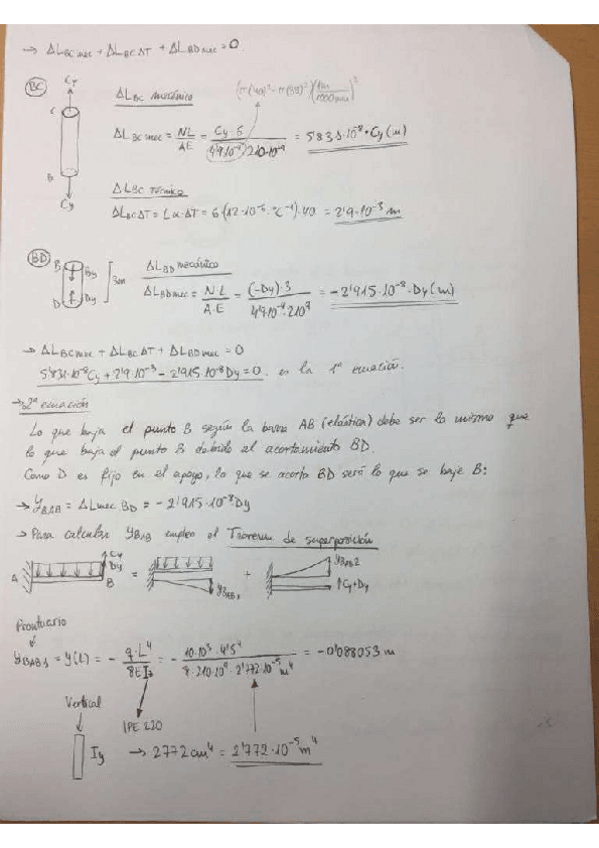 → ΔL_BC mec + ΔL_BC ΔT + ΔL_BD mec = 0
BC
Cy
C
B
Cy
ΔL_BC mecánico
(π(40)² - π(38)²)(1m/1000mm)²
ΔL_BC mec = NL/AE = Cy·6/(4'9·10⁻⁴·210·10⁹) = 5'831·10⁻⁸·Cy (m)
ΔL_BC térmico
ΔL_BC ΔT = L α·ΔT = 6(12·10⁻⁶·ºC⁻¹)·40 = 2'9·10⁻³ m
BD
B
By
D
Dy
3m
ΔL_BD mecánico
ΔL_BD mec = N·L/A·E = (-Dy)·3/(4'9·10⁻⁴·210⁹) = -2'915·10⁻⁸·Dy (m)
→ ΔL_BC mec + ΔL_BC ΔT + ΔL_BD mec = 0
5'831·10⁻⁸Cy + 2'9·10⁻³ - 2'915·10⁻⁸Dy = 0. es la 1ª ecuación.
→ 2ª ecuación
Lo que baja el punto B según la barra AB (elástica) debe ser lo mismo que
lo que baja el punto B debido al acortamiento BD.
Como D es fijo en el apoyo, lo que se acorta BD será lo que se baje B:
→ y_BAB = ΔL mec BD = -2'915·10⁻⁸Dy
→ Para calcular y_BAB empleo el Teorema de superposición
A
Cy
Dy
B
=
y_BAB1
+
y_BAB2
↑Cy+Dy
Prontuario
y_BAB1 = y(L) = - q·L⁴/8EI_z = - 10·10³·4'5⁴/(8·210·10⁹·2'772·10⁻⁵m⁴) = -0'088053 m
Vertical
IPE 220
Iy → 2772cm⁴ = 2'772·10⁻⁵m⁴